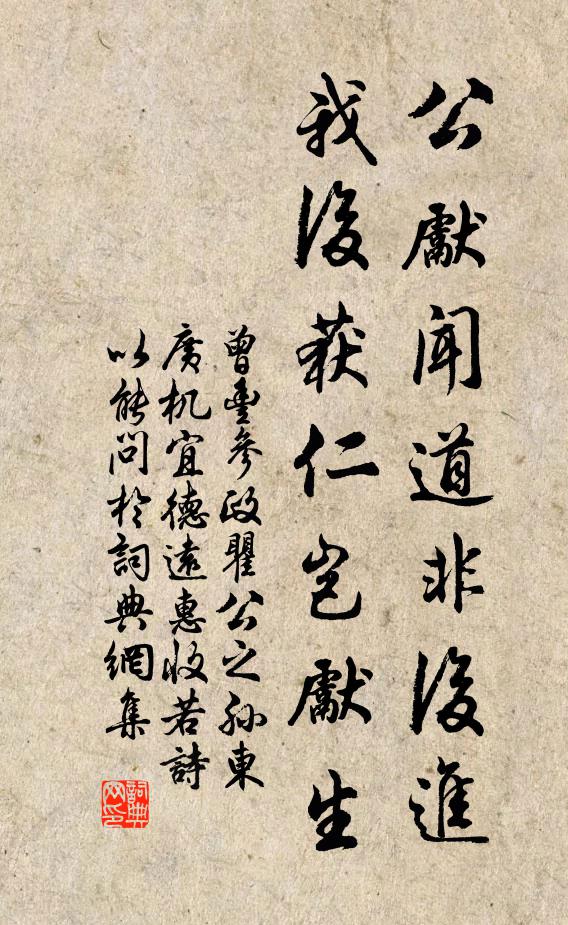 公獻聞道非後進
我後获仁岂獻生
曾豐參政瞿公之孫東
廣机宜德遠惠收若詩
以能問於詞典網集
詞典网印